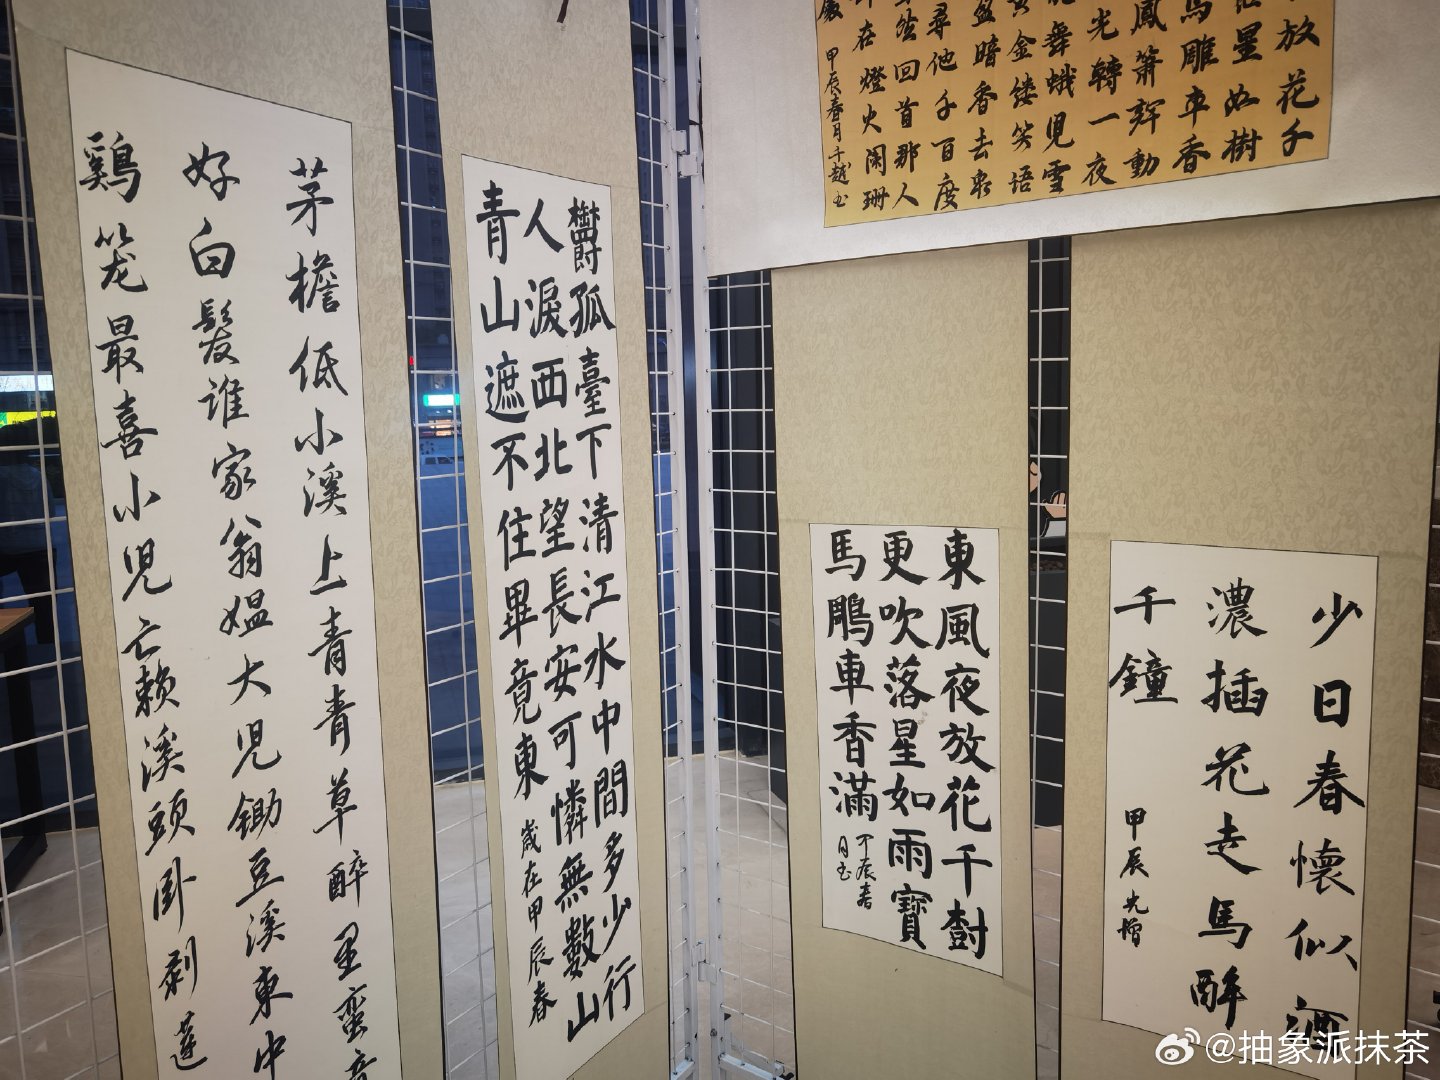 放花千
星如樹
馬雕车香
鳳箫辉動
光轉一夜
舞蛾兒雪
黄金缕笑语
盈暗香去衆
尋他千百度
回首那人
在燈火阑珊
甲辰春月千越书
少日春懷似酒
濃插花走馬醉
千鐘
甲辰 光增
東風夜放花千樹
更吹落星如雨寶
馬鵰車香滿
甲辰春
月书
欝孤臺下清江水中間多少行
人淚西北望長安可憐無數山
青山遮不住畢竟東
歲在甲辰春
茅檐低小溪上青青草醉里蛮音
好白髮谁家翁媪大兒鋤豆溪東中
鷄笼最喜小兒亡赖溪頭卧剥莲
@抽象派抹茶